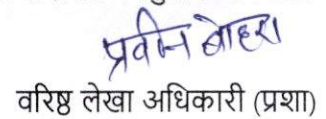 प्रवीन बोहरा
वरिष्ठ लेखा अधिकारी (प्रशा)